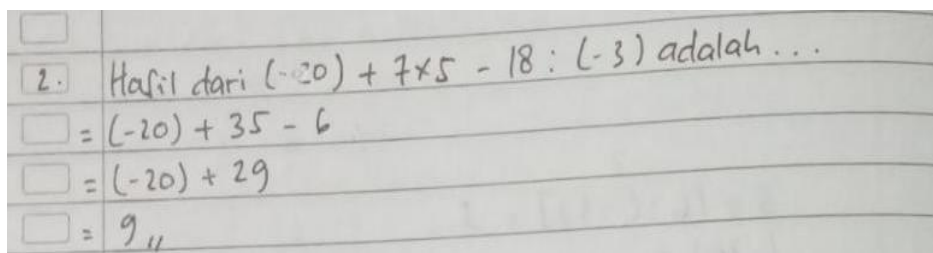 2. Hasil dari (-20) + 7x5 - 18 : (-3) adalah ...
= (-20) + 35 - 6
= (-20) + 29
= 9,,